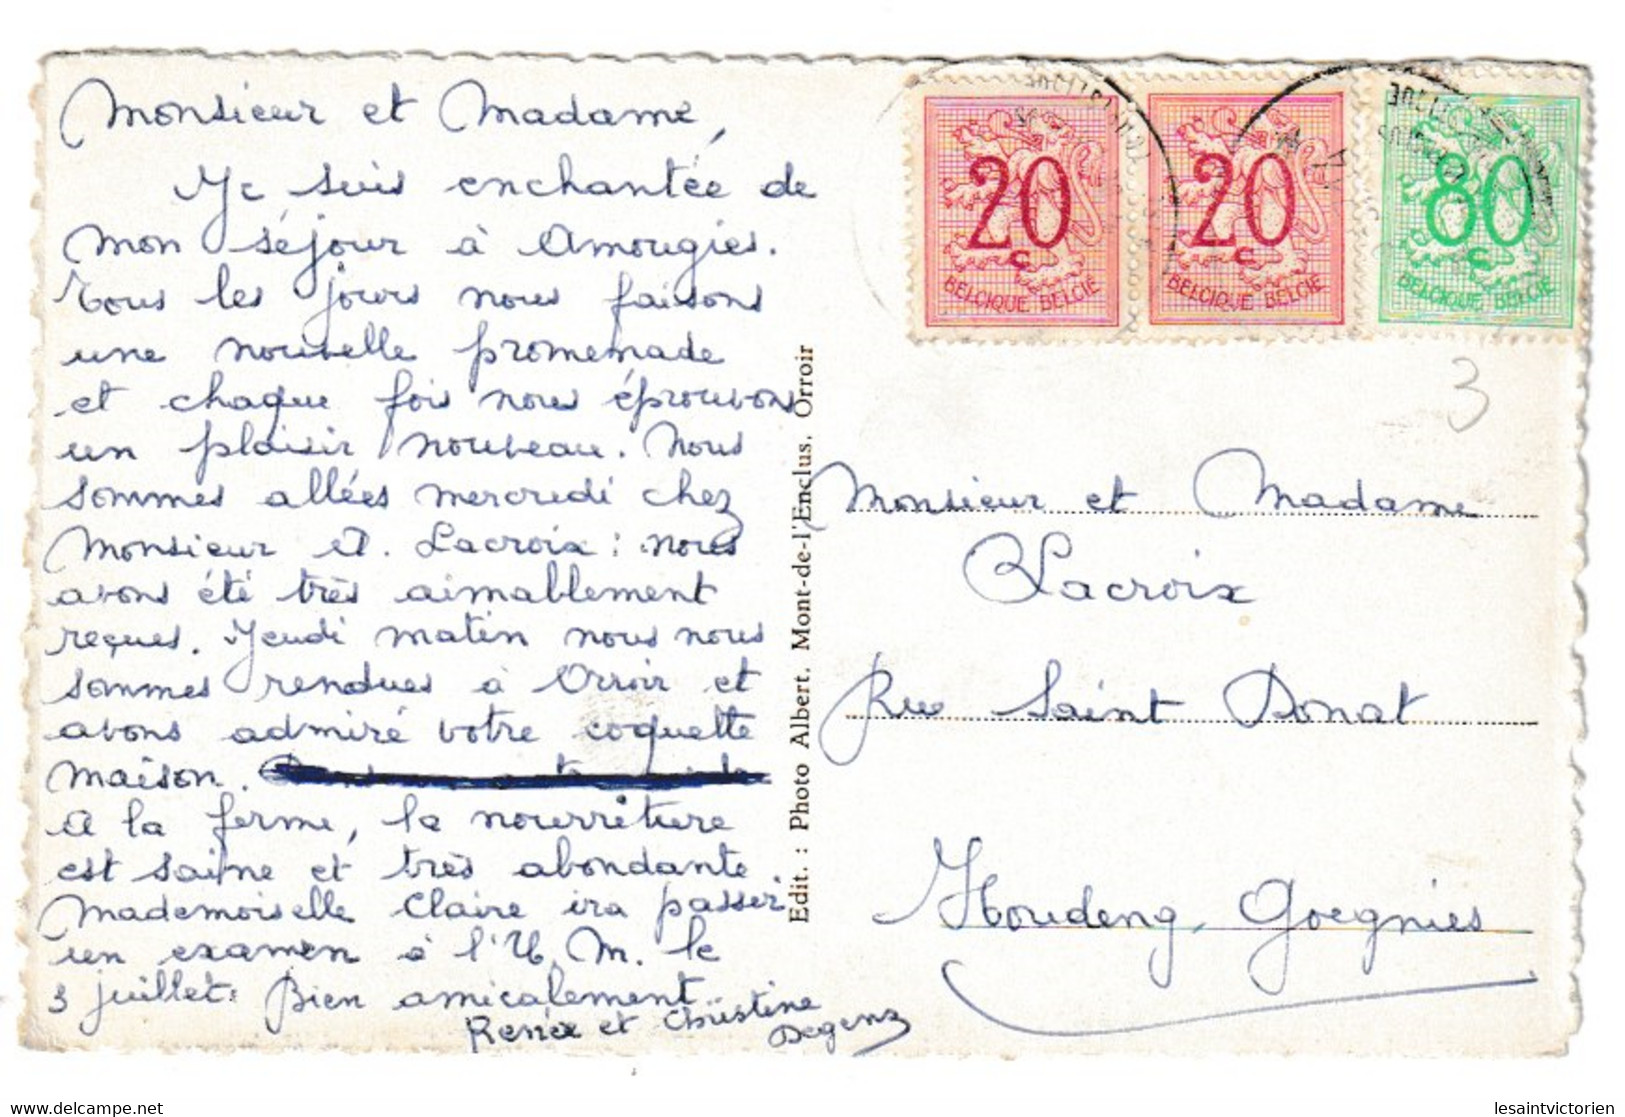 Monsieur et Madame,
Je suis enchantée de
mon séjour à Amougies.
Tous les jours nous faisons
une nouvelle promenade
et chaque fois nous éprouvons
un plaisir nouveau. Nous
sommes allées mercredi chez
Monsieur A. Lacroix : nous
avons été très aimablement
reçues. Jeudi matin nous nous
sommes rendues à Orroir et
avons admiré votre coquette
maison.
A la ferme, la nourriture
est saine et très abondante
Mademoiselle Claire ira passer
un examen à l'U. M. le
3 juillet. Bien amicalement
Renée et Christine
Degenz
Edit. : Photo Albert, Mont-de-l'Enclus, Orroir
20
c
BELGIQUE BELGIË
20
c
BELGIQUE BELGIË
80
c
BELGIQUE BELGIË
3
Monsieur et Madame
Lacroix
Rue Saint Donat
Houdeng, Goegnies
delcampe.net
lesaintvictorien